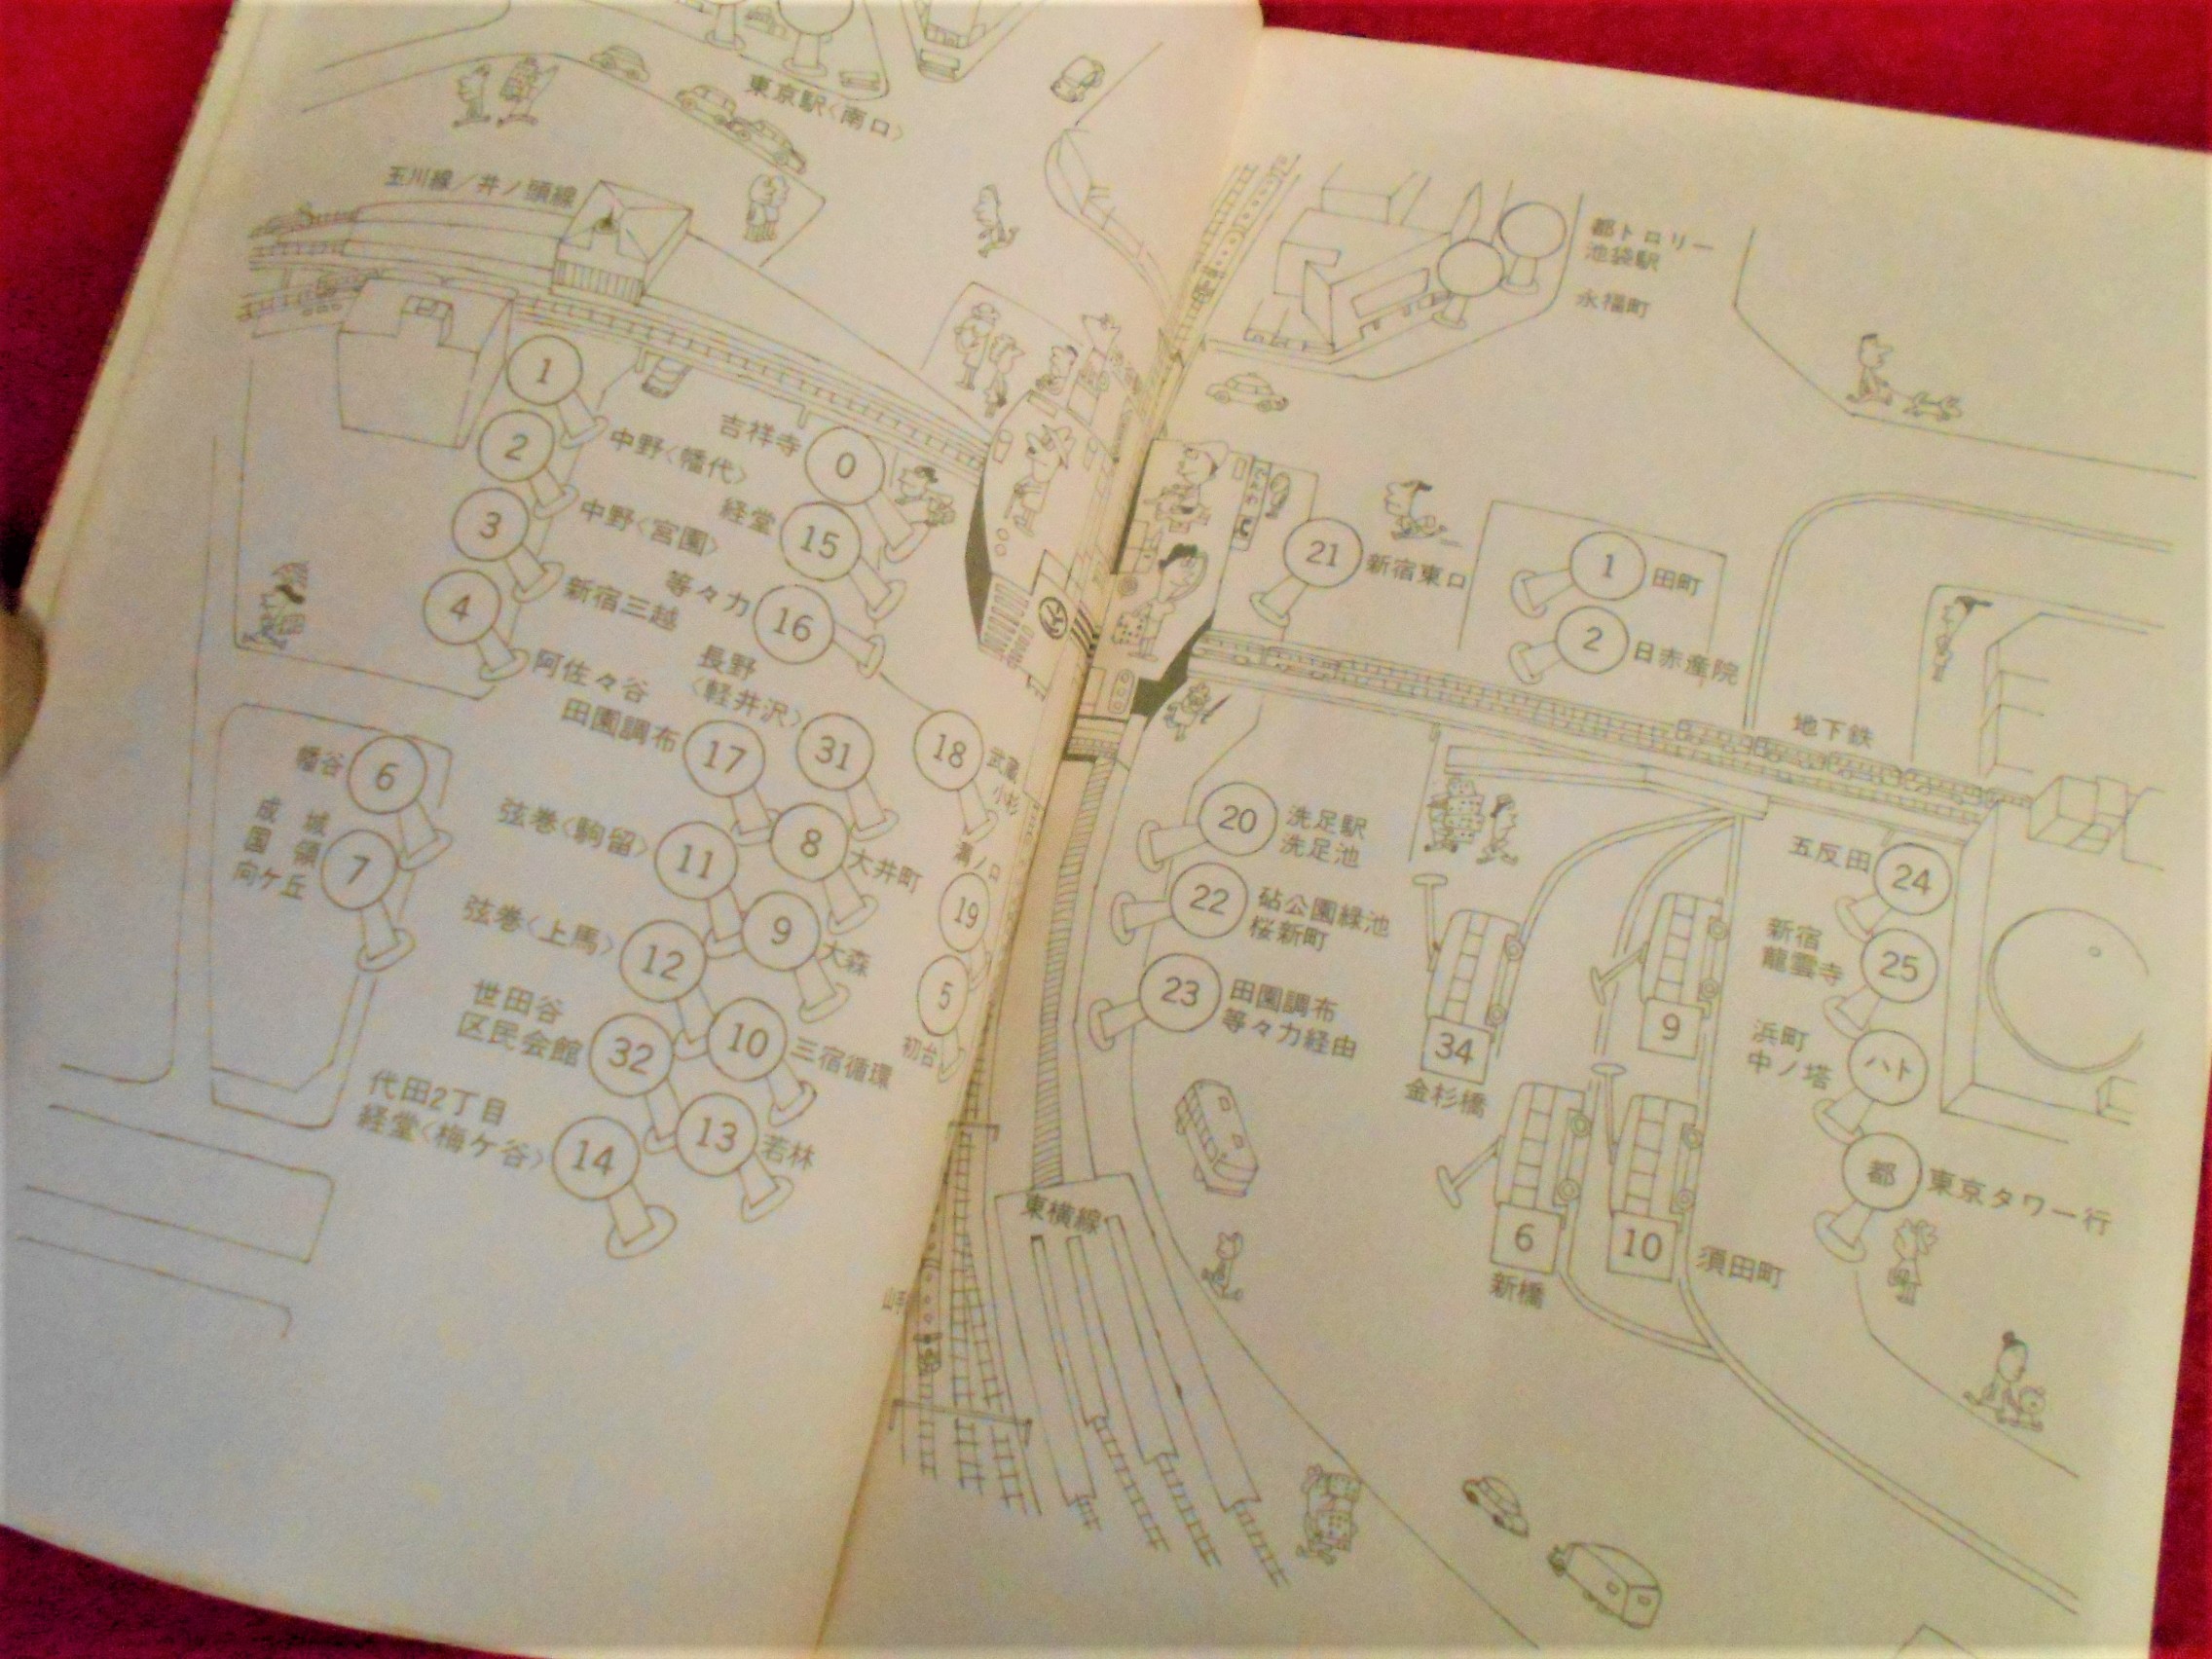 東京駅〈南口〉
玉川線／井ノ頭線
1
中野〈幡代〉
2
中野〈宮園〉
3
新宿三越
4
阿佐々谷
吉祥寺
0
経堂
15
等々力
16
長野
〈軽井沢〉
31
田園調布
17
18
武蔵
小杉
幡谷
6
成城
国領
向ケ丘
7
弦巻〈駒留〉
11
8
大井町
溝ノ口
19
弦巻〈上馬〉
12
9
大森
5
初台
世田谷
区民会館
32
10
三宿循環
代田2丁目
経堂〈梅ケ谷〉
14
13
若林
東横線
都トロリー
池袋駅
永福町
21
新宿東口
1
田町
2
日赤産院
地下鉄
20
洗足駅
洗足池
22
砧公園緑池
桜新町
23
田園調布
等々力経由
34
金杉橋
9
6
新橋
10
須田町
五反田
24
新宿
龍雲寺
25
浜町
中ノ塔
ハト
都
東京タワー行